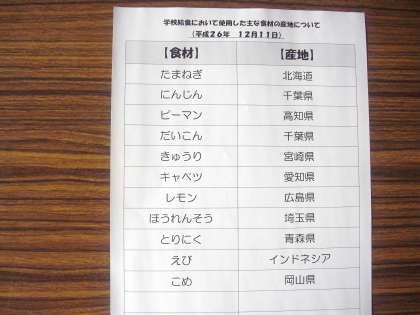 学校給食において使用した主な食材の産地について
(平成26年 12月11日)
【食材】 【産地】
たまねぎ 北海道
にんじん 千葉県
ピーマン 高知県
だいこん 千葉県
きゅうり 宮崎県
キャベツ 愛知県
レモン 広島県
ほうれんそう 埼玉県
とりにく 青森県
えび インドネシア
こめ 岡山県